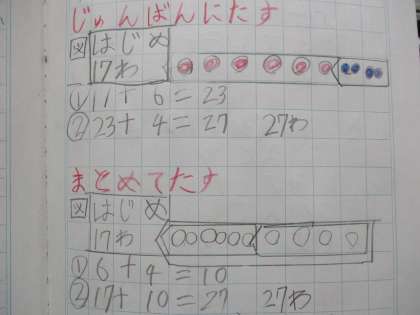 じゅんばんにたす
図 はじめ
17わ
① 17+ 6 = 23
② 23+ 4 = 27 27わ
まとめてたす
図 はじめ
17わ
① 6 + 4 = 10
② 17+ 10 = 27 27わ